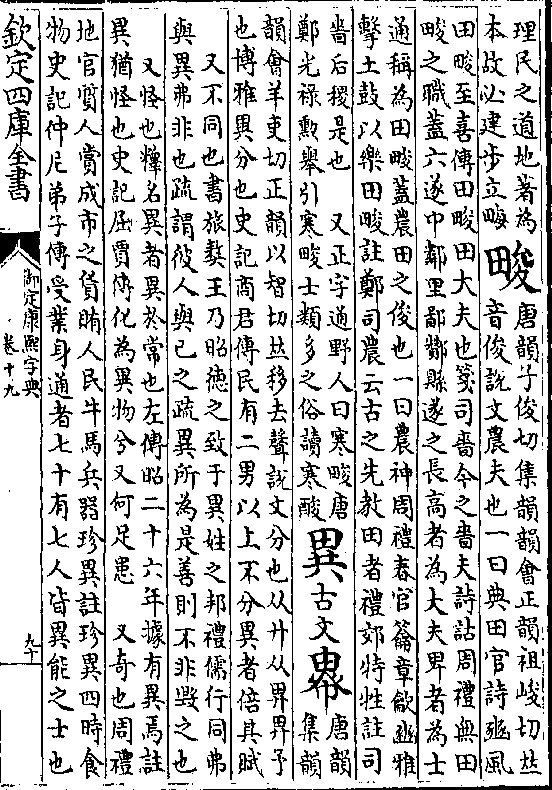 理民之道地著為
本故必建步立畮
畯
唐韻子俊切集韻韻會正韻祖峻切𠀤
音俊說文農夫也一曰典田官詩豳風
田畯至喜傳田畯田大夫也箋司嗇今之嗇夫詩詁周禮無田
畯之職蓋六遂中鄰里鄙酇縣遂之長高者為大夫畀者為士
通稱為田畯蓋農田之俊也一曰農神周禮春官籥章龡豳雅
擊土鼓以樂田畯註鄭司農云古之先教田者禮郊特牲註司
嗇后稷是也　又正字通野人曰寒畯唐
鄭光祿勲舉引寒畯士類多之俗讀寒酸
異
古文
𢄖
唐韻
集韻
韻會羊吏切正韻以智切𠀤移去聲說文分也从廾从畀畀予
也博雅異分也史記商君傳民有二男以上不分異者倍其賦
又不同也書旅獒王乃昭德之致于異姓之邦禮儒行同弗
與異弗非也疏謂彼人與已之疏異所為是善則不非毁之也
又怪也釋名異者異於常也左傳昭二十六年據有異焉註
異猶怪也史記屈賈傳化為異物兮又何足患　又奇也周禮
地官質人賞成市之貨賄人民牛馬兵器珍異註珍異四時食
物史記仲尼弟子傳受業身通者七十有七人皆異能之士也
欽定四庫全書
御定康熙字典
卷十九
九十